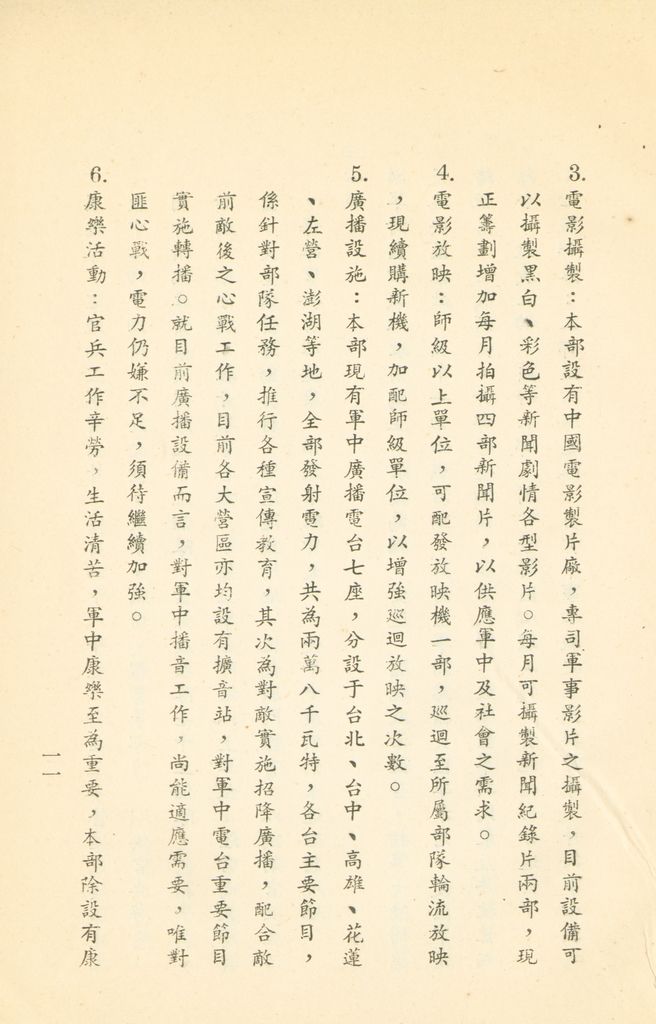 3. 電影攝製：本部設有中國電影製片廠，專司軍事影片之攝製，目前設備可
以攝製黑白、彩色等新聞劇情各型影片。每月可攝製新聞紀錄片兩部，現
正籌劃增加每月拍攝四部新聞片，以供應軍中及社會之需求。
4. 電影放映：師級以上單位，可配發放映機一部，巡迴至所屬部隊輪流放映
，現續購新機，加配師級單位，以增強巡迴放映之次數。
5. 廣播設施：本部現有軍中廣播電台七座，分設于台北、台中、高雄、花蓮
、左營、澎湖等地，全部發射電力，共為兩萬八千瓦特，各台主要節目，
係針對部隊任務，推行各種宣傳教育，其次為對敵實施招降廣播，配合敵
前敵後之心戰工作，目前各大營區亦均設有擴音站，對軍中電台重要節目
實施轉播。就目前廣播設備而言，對軍中播音工作，尚能適應需要，唯對
匪心戰，電力仍嫌不足，須待繼續加強。
6. 康樂活動：官兵工作辛勞，生活清苦，軍中康樂至為重要，本部除設有康
一一